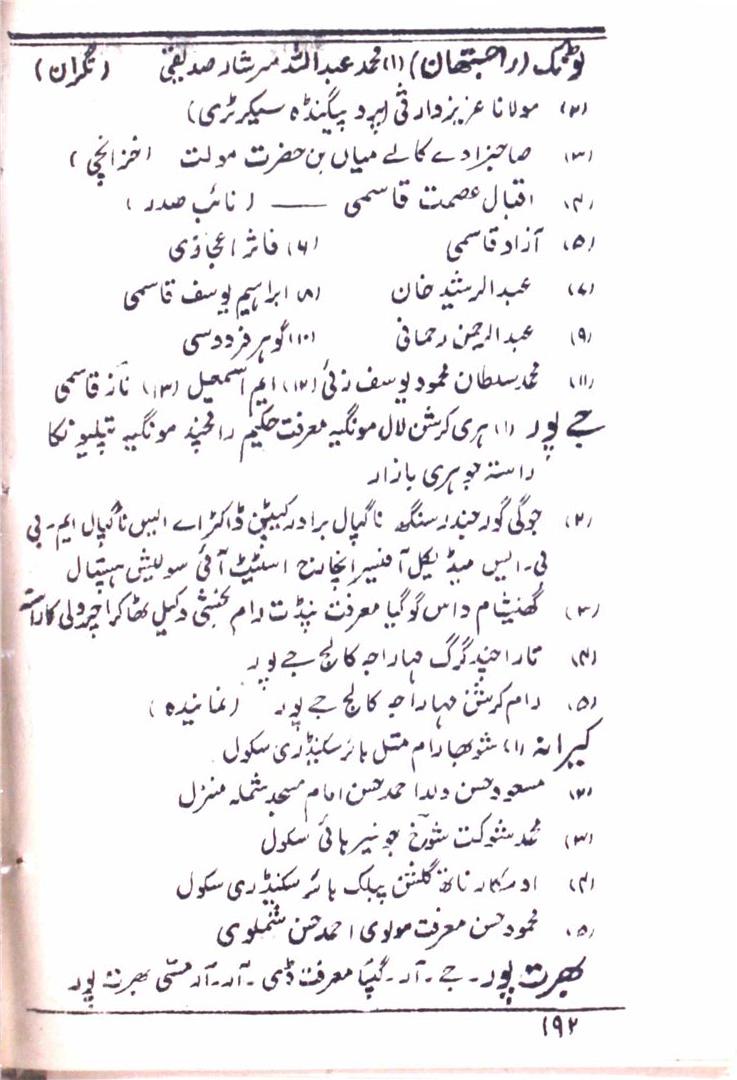 ٹونک (راجستھان) (۱) محمد عبداللہ سرشار صدیقی (نگران)
(۲) مولانا عزیز وارثی (پروپیگنڈہ سیکرٹری)
(۳) صاحبزادے کالے میاں بن حضرت صولت (خزانچی)
(۴) اقبال عصمت قاسمی —— (نائب صدر)
(۵) آزاد قاسمی (۶) فائز اعجازی
(۷) عبدالرشید خان (۸) ابراہیم یوسف قاسمی
(۹) عبدالرحمن رحمانی (۱۰) گوہر فردوسی
(۱۱) محمد سلطان محمود یوسف زئی (۱۲) ایم اسمعیل (۱۳) ناز قاسمی
جے پور (۱) ہری کرشن لال مونگیہ معرفت حکیم رامچند مونگیہ
راستہ جوہری بازار
(۲) جوگی گوربندر سنگھ ناگپال برادر کیپٹن ڈاکٹر اے ایس ناگپال ایم۔بی
بی۔ایس میڈیکل آفسیر انچارج اسٹیٹ آئی سولیشن ہسپتال
(۳) گھنیشام داس گوگیا معرفت پنڈت رام بخشی وکیل ٹھاکر اچرولی کا راستہ
(۴) تارا چند گرگ مہاراجہ کالج جے پور
(۵) رام کرشن مہاراجہ کالج جے پور (نمائیندہ)
کیرانہ (۱) شوبھا رام متل ہائر سکینڈری سکول
(۲) مسعود حسن ولد احمد حسن امام مسجد شملہ منزل
(۳) محمد شوکت شوخ جونیر ہائی سکول
(۴) اومکار ناتھ گلشن پبلک ہائر سکنڈری سکول
(۵) محمود حسن معرفت مولوی احمد حسن شملوی
بھرت پور۔ جے۔آر۔گپتا معرفت ڈی۔آر۔آر مستی بھرت پور
۱۹۲